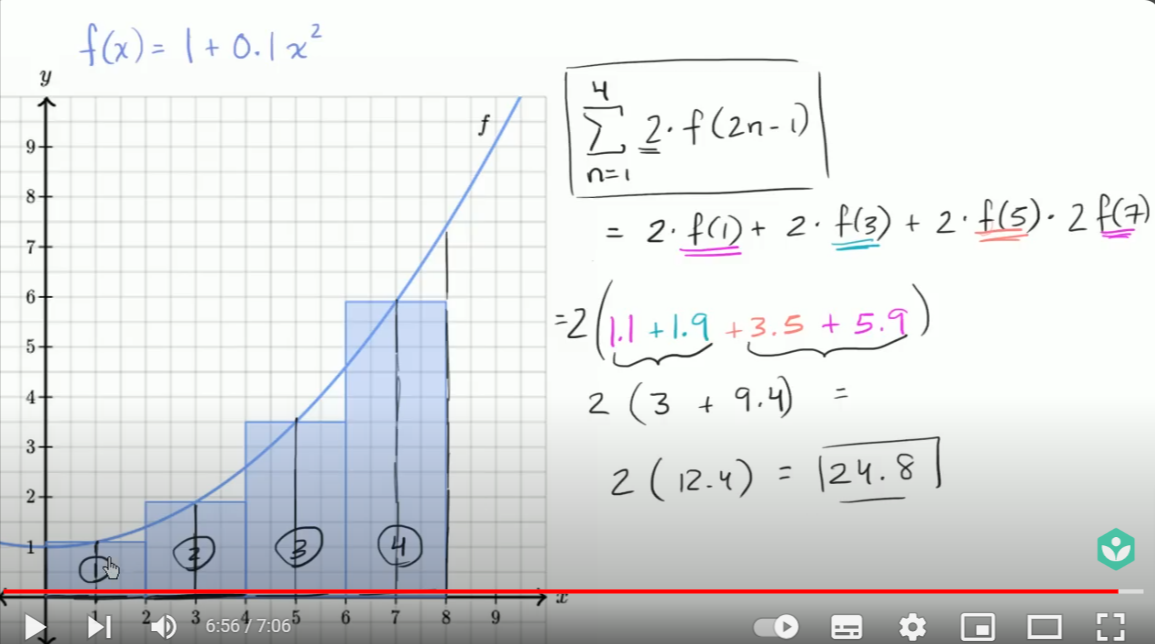 f(x) = 1 + 0.1x²
y
f
9
8
7
6
5
4
3
2
1
1 2 3 4 5 6 7 8 9 x
① ② ③ ④
4
∑ 2 · f(2n-1)
n=1
= 2 · f(1) + 2 · f(3) + 2 · f(5) · 2 f(7)
=2(1.1 + 1.9 + 3.5 + 5.9)
2 (3 + 9.4) =
2 (12.4) = 24.8
6:56 / 7:06